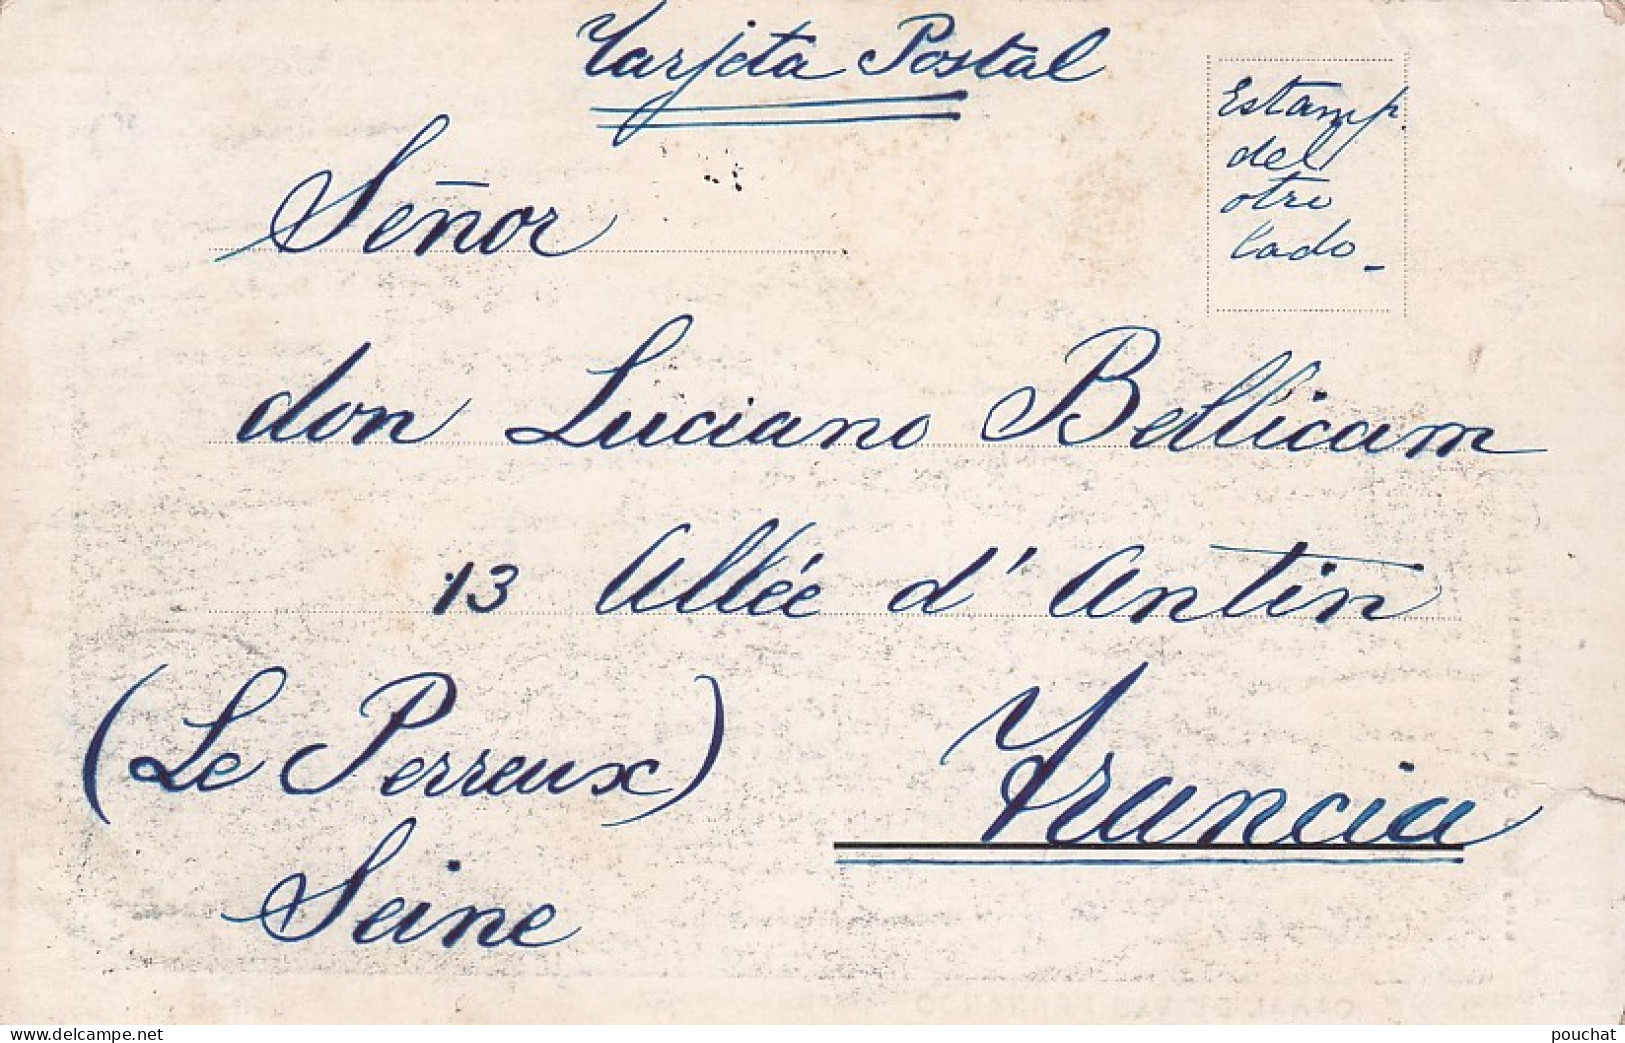 Tarjeta Postal
Estamp.
del
otro
lado_
Señor
don Luciano Bellicam
13 Allée d'Antin
(Le Perreux)
Francia
Seine
www.delcampe.net
pouchat